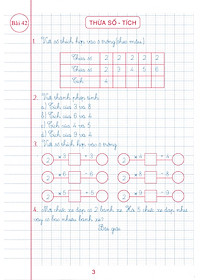 Bài 42
THỪA SỐ - TÍCH
1. Viết số thích hợp vào ô trống (theo mẫu).
Thừa số 2 2 2 2 2
Thừa số 2 3 4 5 6
Tích 4
2. Viết thành phép tính
a) Tích của 3 và 8
b) Tích của 6 và 4
c) Tích của 4 và 5
d) Tích của 9 và 4
3. Viết số thích hợp vào ô trống.
4. Một chiếc xe đạp có 2 bánh xe. Hỏi 5 chiếc xe đạp như vậy có bao nhiêu bánh xe?
Bài giải
3